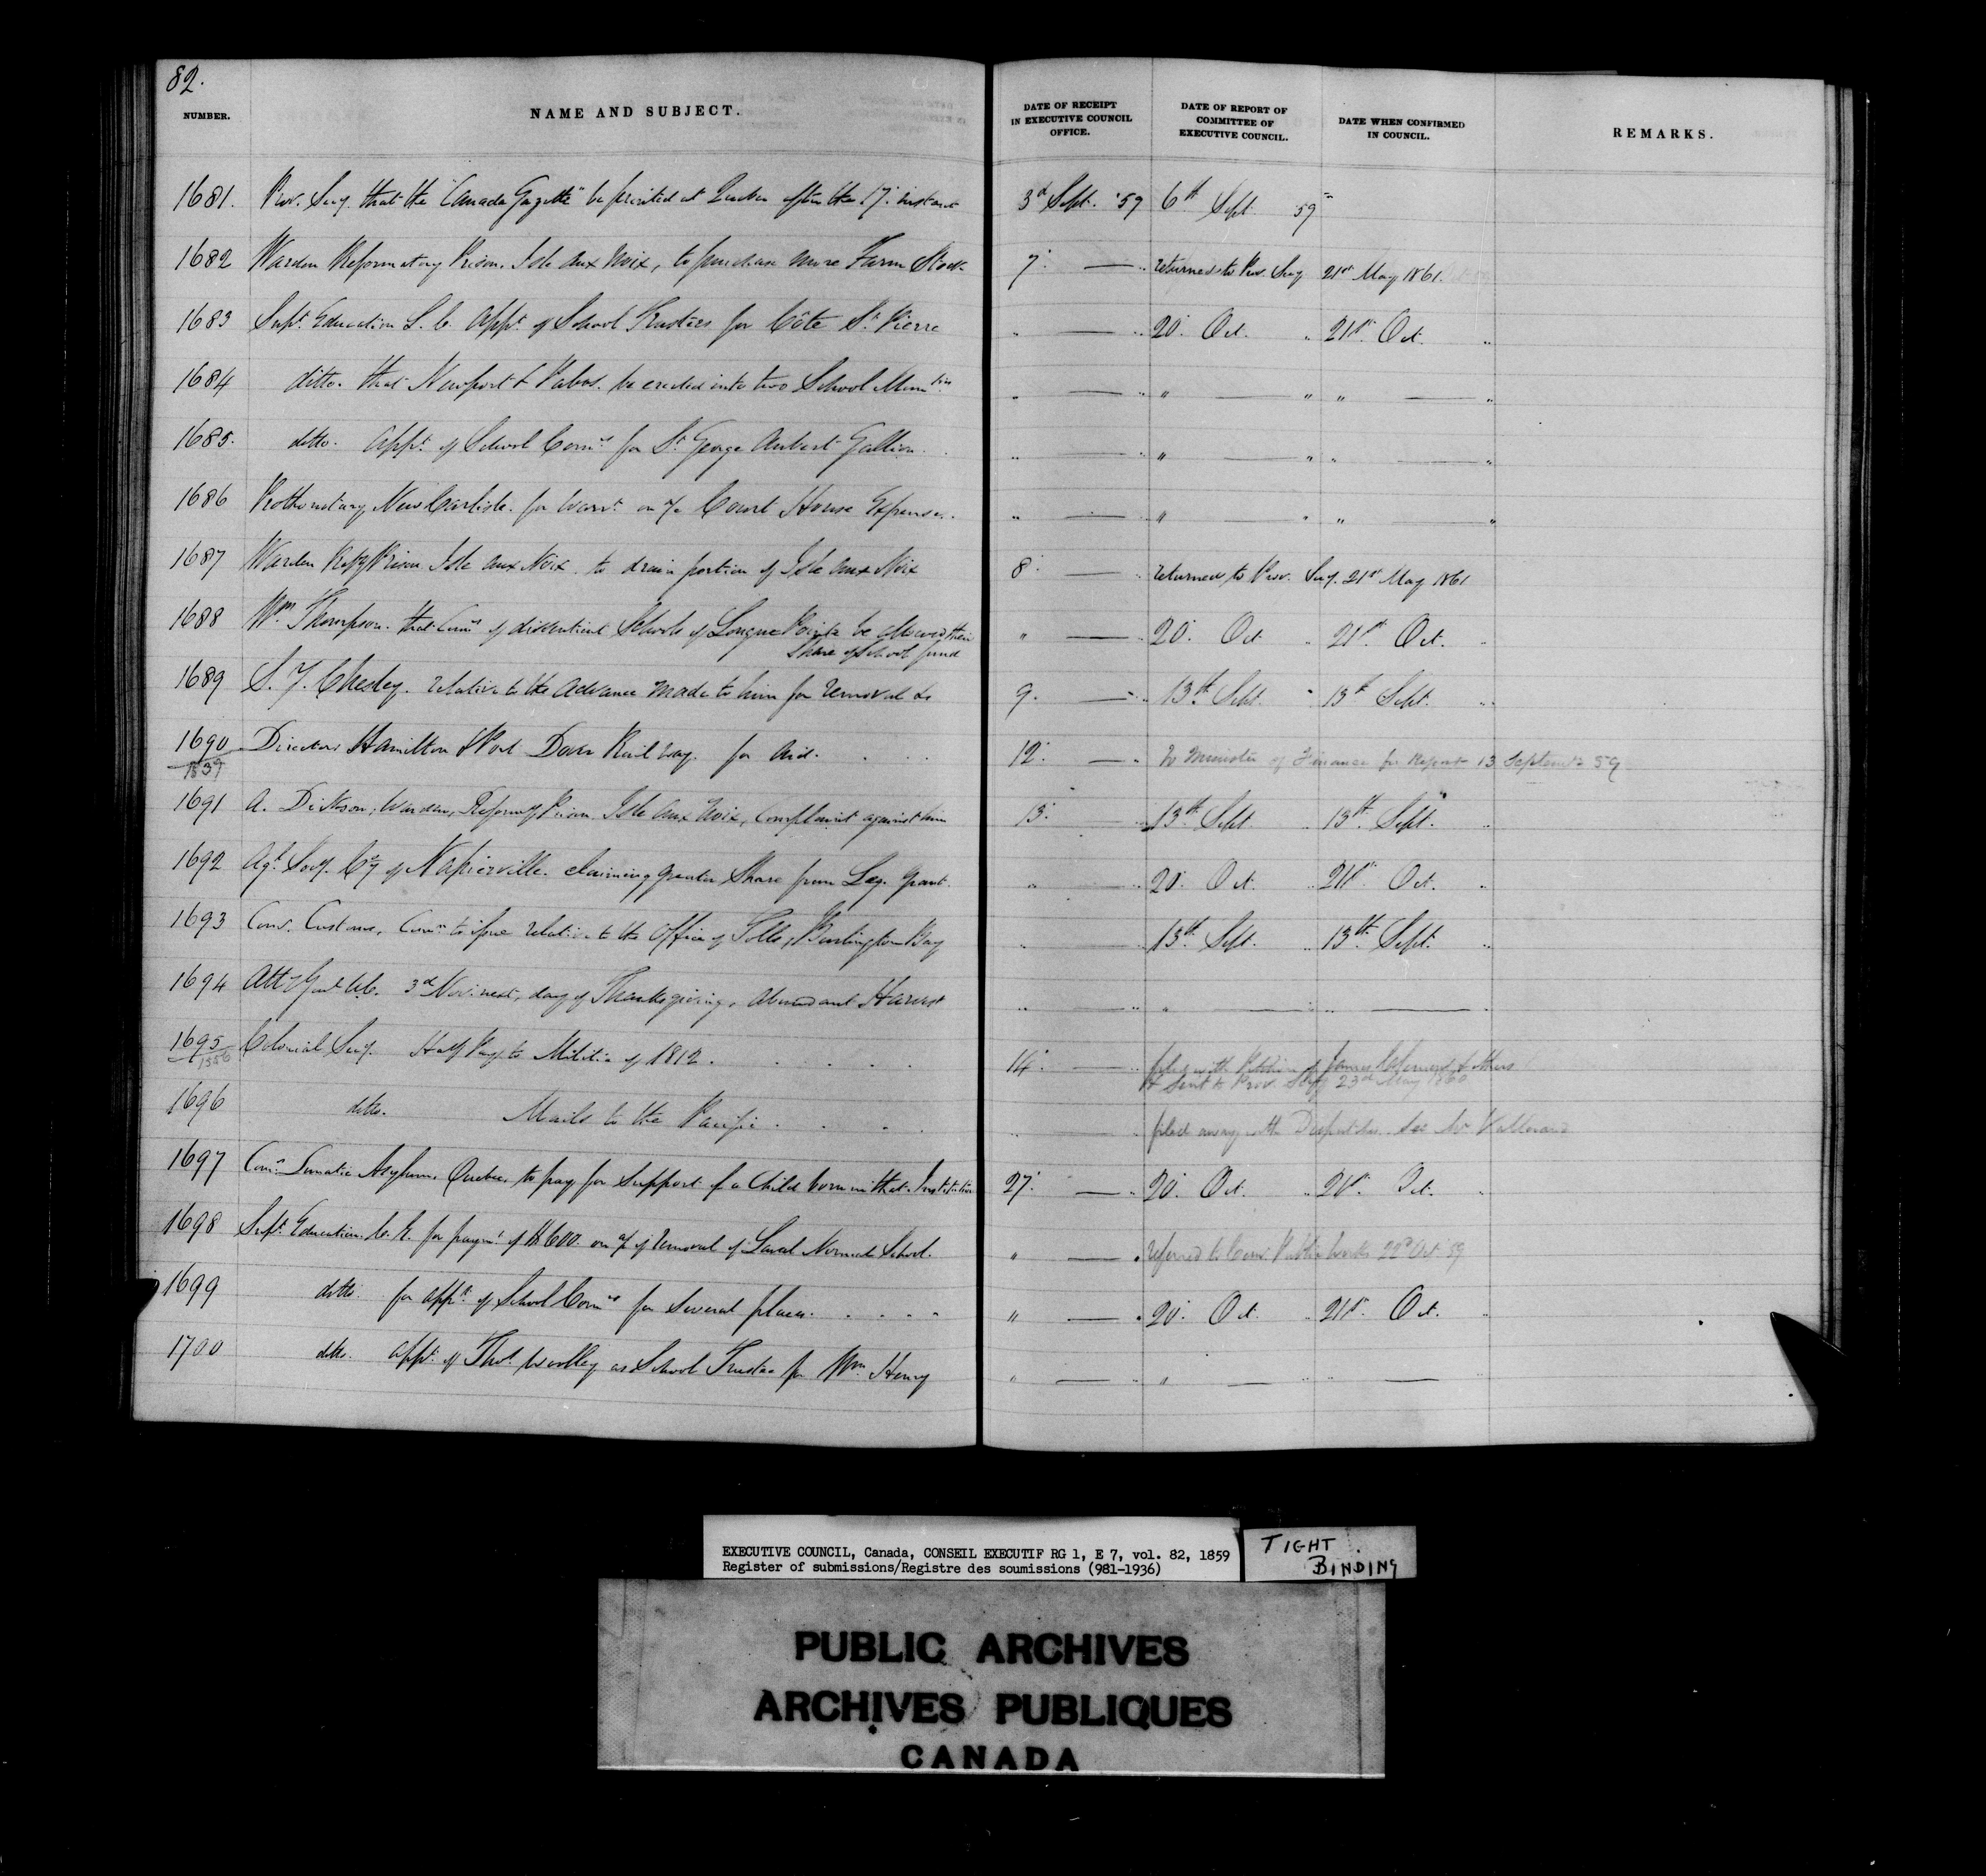 82.
NUMBER. NAME AND SUBJECT. DATE OF RECEIPT IN EXECUTIVE COUNCIL OFFICE. DATE OF REPORT OF COMMITTEE OF EXECUTIVE COUNCIL. DATE WHEN CONFIRMED IN COUNCIL. REMARKS.
1681. Prov. Secy. that the "Canada Gazette" be printed at Quebec after the 17. instant 3d Sept. '59 6th Sept 59
1682 Warden Reformatory Prison, Isle aux Noix, to purchase more Farm Stock 7. — " returned to Prov. Secy 21st May 1861.
1683 Supt. Education L. C. Appt. of School Trustees for Côte St. Pierre " — " 20. Oct. " 21st. Oct. "
1684 ditto. that Newport & Pabos. be erected into two School Muntis " — " " — " " — "
1685. ditto. Appt. of School Comrs for St. George Aubert Gallion. " — " " — " " — "
1686 Prothonotary New Carlisle. for Warrt. on a/c Court House Expenses. " — " " — " " — "
1687 Warden Refy Prison Isle aux Noix. to drain portion of Isle aux Noix 8. — " returned to Prov. Secy. 21st May 1861
1688 Wm. Thompson. that Comrs of dissentient Schools of Longue Pointe be allowed their " — " 20. Oct " 21st. Oct. "
Share of School fund
1689 S. Y. Chesley. relative to the advance made to him for removal &c 9. — " 13th Sept. " 13th Sept. "
1690 Directors Hamilton & Port Dover Railway. for aid. . . . 12. — " To Minister of Finance for Report 13 September 59
1539
1691 A. Dickson, Warden, Reformy Prison Isle aux Noix, complaint against him 13. — " 13th. Sept. " 13th. Sept. "
1692 Agl. Socy. Cy of Napierville. claiming greater Share from Leg. Grant. " — " 20. Oct. " 21st. Oct. "
1693 Comr. Customs, Comn to issue relative to the Office of Tolls, Burlington Bay " — " 13th. Sept. " 13th. Sept. "
1694 Atty Genl U.C. 3d Nov. next, day of Thanksgiving, Abundant Harvest " — " " — " " — "
1695 Colonial Secy. Half Pay to Militia of 1812. . . . . 14. — " filed with Petition of James & others
1556 & Sent to Prov. Secy 23rd May 1860
1696 ditto. Mails to the Pacific . . . . " — " filed away with Despatches. See Mr
1697 Comrs Lunatic Asylum, Quebec, to pay for support of a Child born in that Institution 27. — " 20. Oct. " 21st. Oct. "
1698 Supt. Education. C. E. for paymt. of $600. on a/c of removal of Laval Normal School. " — " referred to Comr. Public Works 22d Oct. 59
1699 ditto. for appt. of School Comrs for several places. . . . . " — " 20. Oct. " 21st. Oct. "
1700 ditto. appt. of Thos. Woolley as School Trustee for Wm Henry " — " " — " " — "
EXECUTIVE COUNCIL, Canada, CONSEIL EXECUTIF RG 1, E 7, vol. 82, 1859
Register of submissions/Registre des soumissions (981-1936)
TIGHT BINDING
PUBLIC ARCHIVES
ARCHIVES PUBLIQUES
CANADA